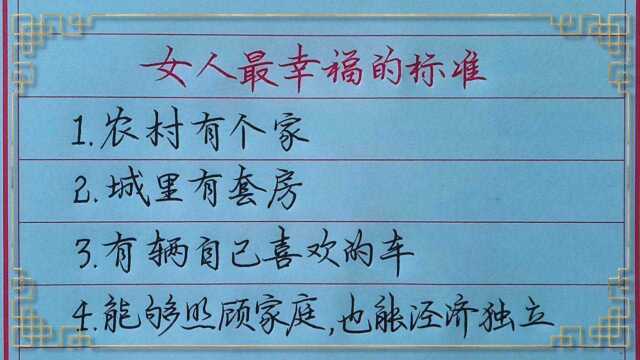 女人最幸福的标准
1.农村有个家
2.城里有套房
3.有辆自己喜欢的车
4.能够照顾家庭,也能泾济独立